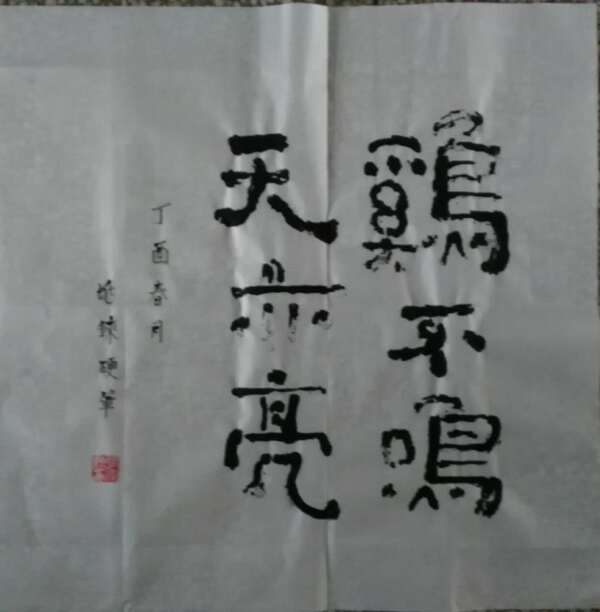 鷄不鳴
天亦亮
丁酉春月
鍊硬筆